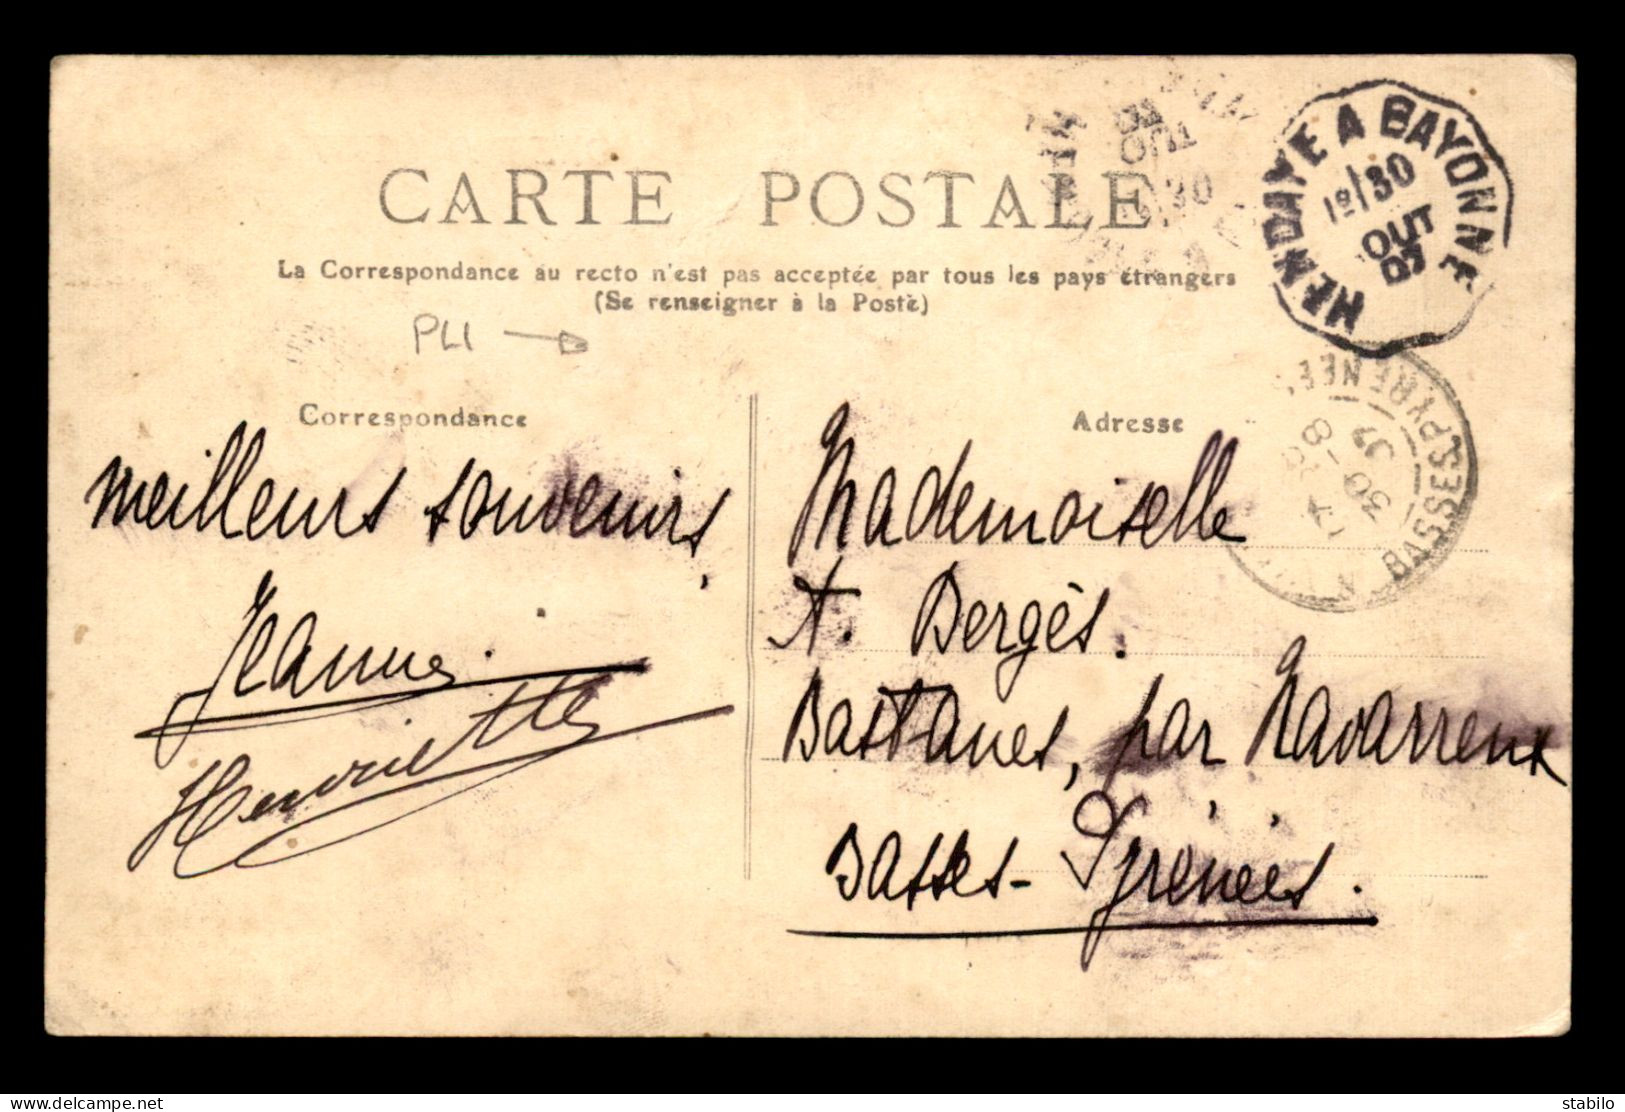 CARTE POSTALE
La Correspondance au recto n'est pas acceptée par tous les pays étrangers
(Se renseigner à la Poste)
PLI
HENDAYE A BAYONNE
1º/30
OUT
07
BASSES PYRENEES
8
30
Correspondance
meilleurs souvenirs,
Jeanne.
Henriette
Adresse
Mademoiselle
A. Bergès.
Bastanes, par Navarrenx
Basses-Pyrénées.
delcampe.net
stabilo